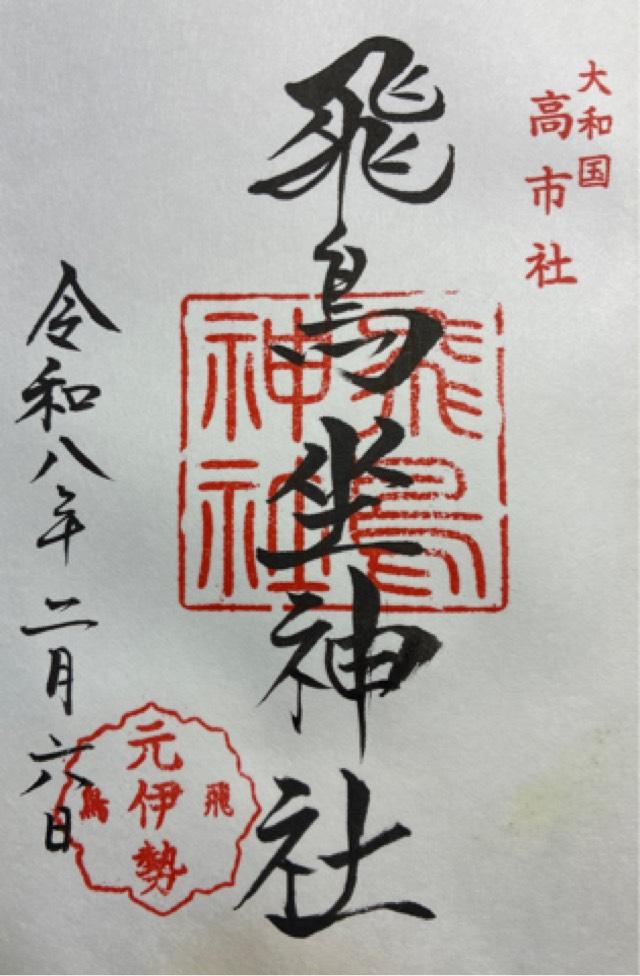 大和国
高市社
飛鳥坐神社
飛鳥
神社
令和八年二月六日
飛鳥
元伊勢